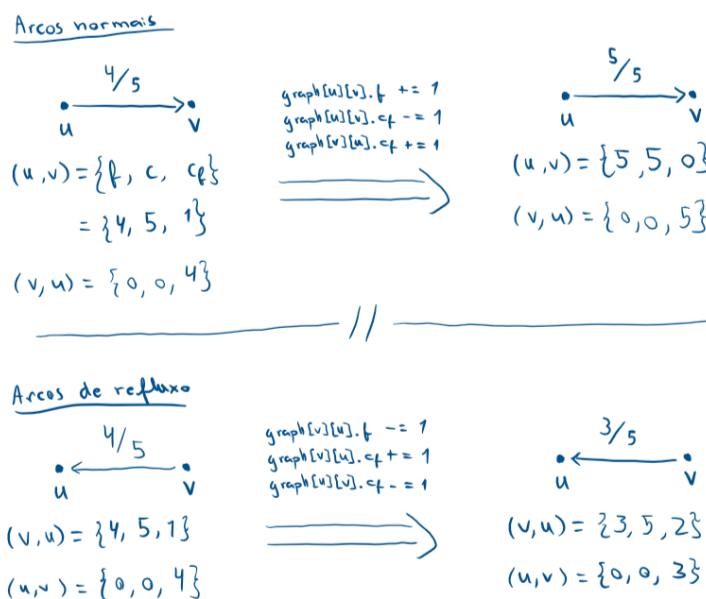 Arcos normais
4/5
u v
(u,v) = {f, c, cf}
= {4, 5, 1}
(v,u) = {0,0,4}
graph[u][v].f += 1
graph[u][v].cf -= 1
graph[v][u].cf += 1
5/5
u v
(u,v) = {5,5,0}
(v,u) = {0,0,5}
//
Arcos de refluxo
4/5
u v
(v,u) = {4,5,1}
(u,v) = {0,0,4}
graph[v][u].f -= 1
graph[v][u].cf += 1
graph[u][v].cf -= 1
3/5
u v
(v,u) = {3,5,2}
(u,v) = {0,0,3}